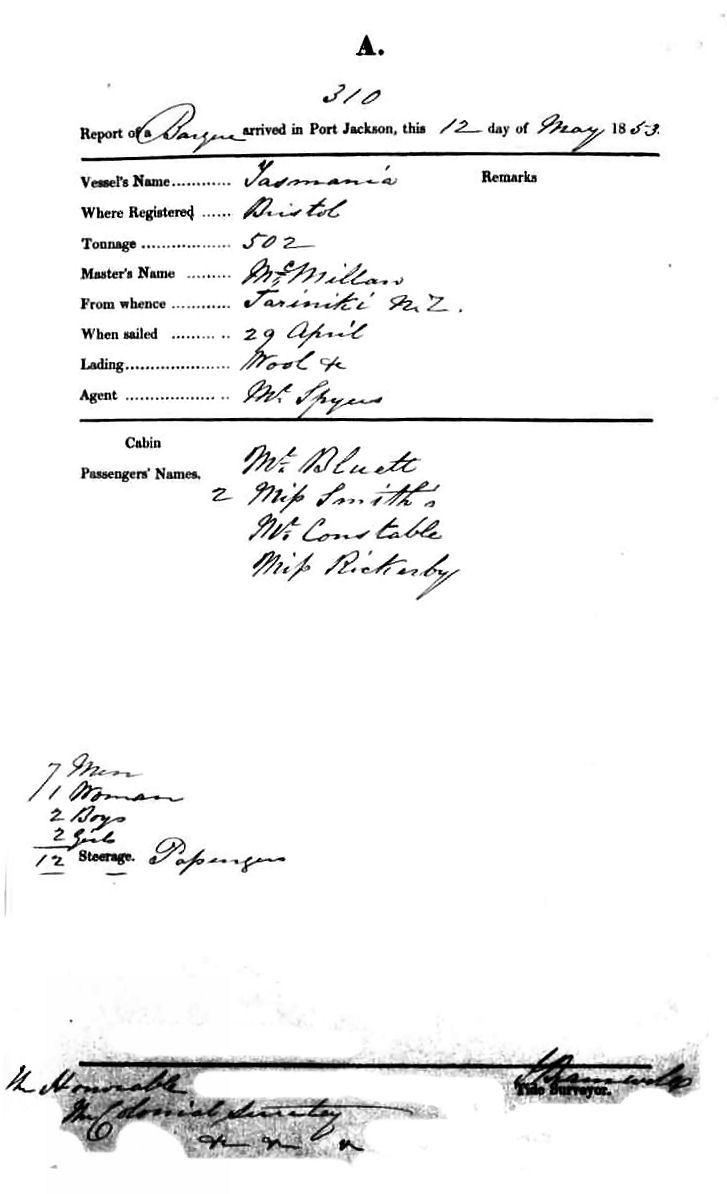 A.
310
Report of a Barque arrived in Port Jackson, this 12 day of May 1853.
Vessel's Name............ Tasmania Remarks
Where Registered ...... Bristol
Tonnage .................. 502
Master's Name ......... McMillan
From whence ............ Tariniki N.Z.
When sailed ......... .. 29 April
Lading..................... Wool &c
Agent .................. .. Mr. Spyers
Cabin
Passengers' Names, Mr. Bluett
2 Miss Smith's
Mr. Constable
Miss Rickerby
7 Men
1 Woman
2 Boys
2 Girls
12 Steerage. Passengers
The Honorable
The Colonial Secretary
Tide Surveyor.
&c &c &c